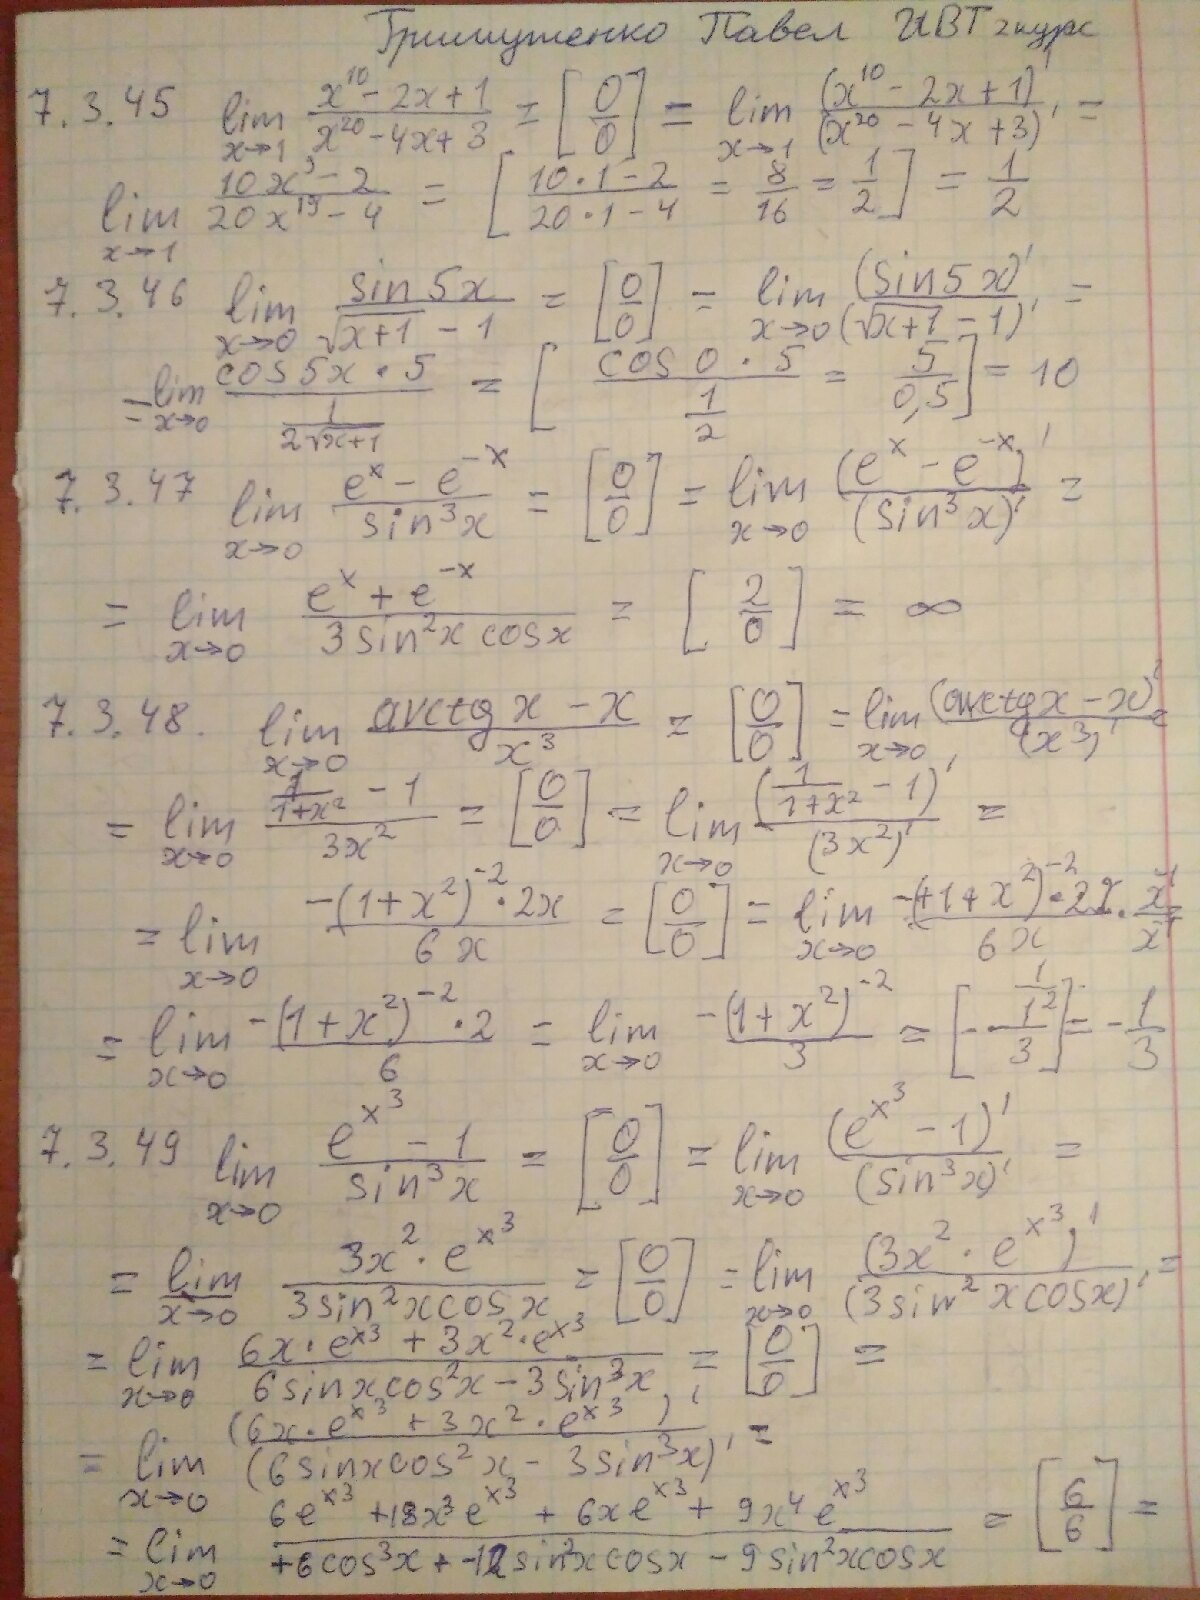 Гримутенко Павел ИВТ 2 курс
7.3.45 lim x→1 (x^10 - 2x + 1)/(x^20 - 4x + 3) = [0/0] = lim x→1 (x^10 - 2x + 1)'/(x^20 - 4x + 3)' =
lim x→1 (10x^9 - 2)/(20x^19 - 4) = [(10·1 - 2)/(20·1 - 4) = 8/16 = 1/2] = 1/2
7.3.46 lim x→0 sin5x/(√(x+1) - 1) = [0/0] = lim x→0 (sin5x)'/(√(x+1) - 1)' =
= lim x→0 (cos5x·5)/(1/(2√(x+1))) = [(cos0·5)/(1/2) = 5/0,5] = 10
7.3.47 lim x→0 (e^x - e^-x)/sin^3x = [0/0] = lim x→0 (e^x - e^-x)'/(sin^3x)' =
= lim x→0 (e^x + e^-x)/(3sin^2x cosx) = [2/0] = ∞
7.3.48. lim x→0 (arctgx - x)/x^3 = [0/0] = lim x→0 (arctgx - x)'/(x^3)' =
= lim x→0 (1/(1+x^2) - 1)/(3x^2) = [0/0] = lim x→0 (1/(1+x^2) - 1)'/(3x^2)' =
= lim x→0 (-(1+x^2)^-2·2x)/(6x) = [0/0] = lim x→0 (-(1+x^2)^-2·2x·x^-1)/(6x·x^-1) =
= lim x→0 (-(1+x^2)^-2·2)/6 = lim x→0 (-(1+x^2)^-2)/3 = [-(1/1^2)/3] = -1/3
7.3.49 lim x→0 (e^x^3 - 1)/sin^3x = [0/0] = lim x→0 (e^x^3 - 1)'/(sin^3x)' =
= lim x→0 (3x^2·e^x^3)/(3sin^2x cosx) = [0/0] = lim x→0 (3x^2·e^x^3)'/(3sin^2x cosx)' =
= lim x→0 (6x·e^x^3 + 3x^2·e^x^3)/(6sinxcos^2x - 3sin^3x) = [0/0] =
= lim x→0 (6x·e^x^3 + 3x^2·e^x^3)'/(6sinxcos^2x - 3sin^3x)' =
= lim x→0 (6e^x^3 + 18x^3e^x^3 + 6xe^x^3 + 9x^4e^x^3)/(+6cos^3x + -12sin^2xcosx - 9sin^2xcosx) = [6/6] =